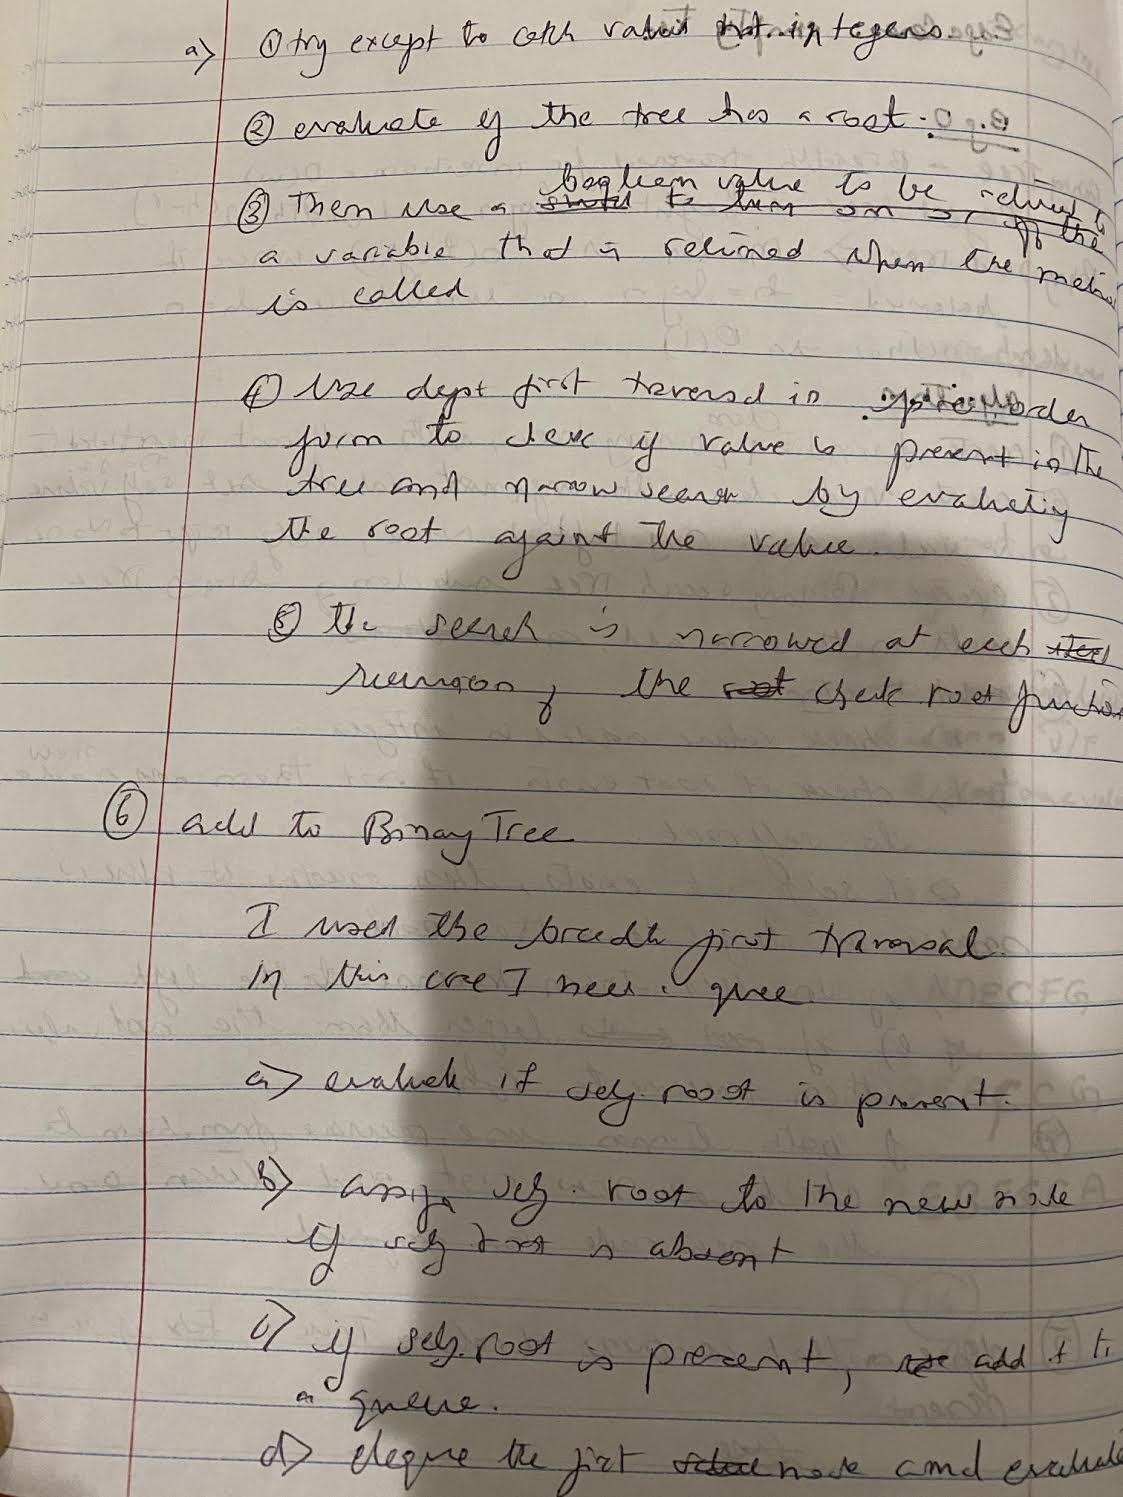 a) ① try except to catch values not integers.
② evaluate if the tree has a root.
boolean value to be returned
③ Then use a to turn on or off the
a variable that is retuned when the method
is called
④ Use dept first traversal in order
form to check if value is present in the
tree and narrow search by evaluating
the root against the value.
⑤ the search is narrowed at each
recursion, the root check root function
⑥ add to Binary Tree
I used the breadth first traversal.
In this case I need a queue
a) evaluate if self.root is present.
b) assign self.root to the new node
if self root is absent
c) if self.root is present, add it to
a queue.
d) deque the first node and evaluate